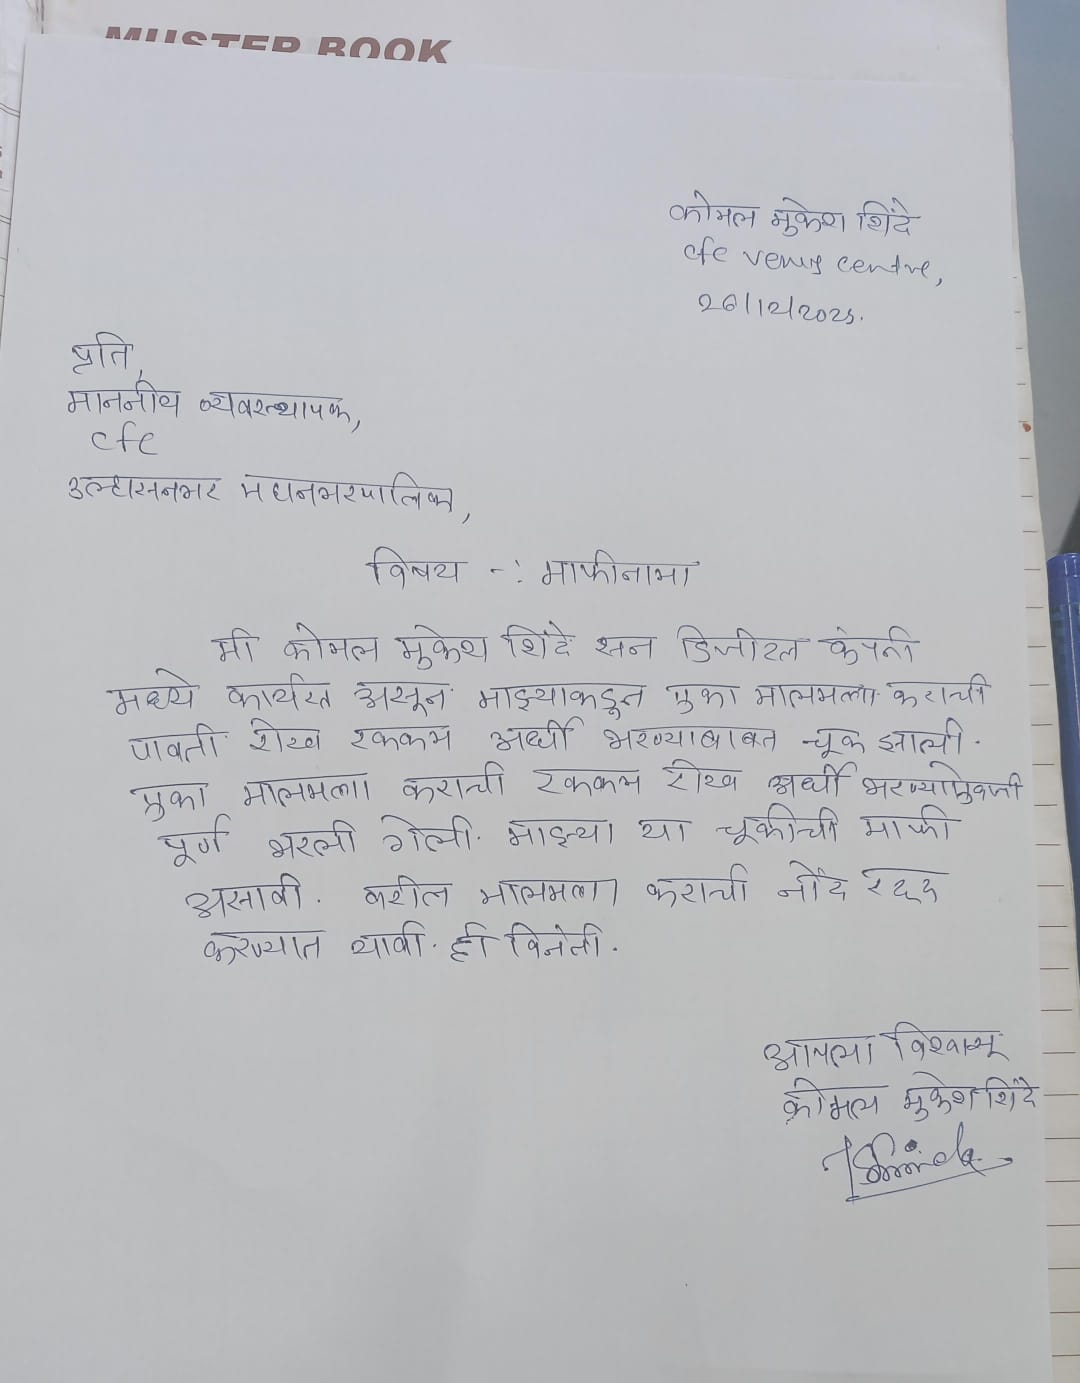 MUSTER BOOK
कोमल मुकेश शिंदे
cfc venus centre,
26/12/2025.
प्रति,
माननीय व्यवस्थापक,
cfc
उल्हासनगर महानगरपालिका,
विषय -: माफीनामा
मी कोमल मुकेश शिंदे सन डिजीटल कंपनी
मध्ये कार्यरत असून माझ्याकडून एका मालमत्ता कराची
पावती रोख रक्कम अर्धी भरण्याबाबत चूक झाली.
एका मालमत्ता कराची रक्कम रोख अर्धी भरण्याऐवजी
पूर्ण भरली गेली. माझ्या या चूकीची माफी
असावी. वरील मालमत्ता कराची नोंद रद्द
करण्यात यावी. ही विनंती.
आपला विश्वासू
कोमल मुकेश शिंदे